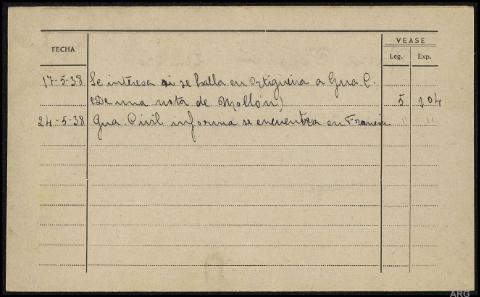 VEASE
FECHA
Leg. Exp.
17-5-38 Se interesa si se halla en Ortigueira a Gua C.
(De una nota de Mollón) 5 104
24-5-38 Gua Civil informa se encuentra en Francia " "
ARG